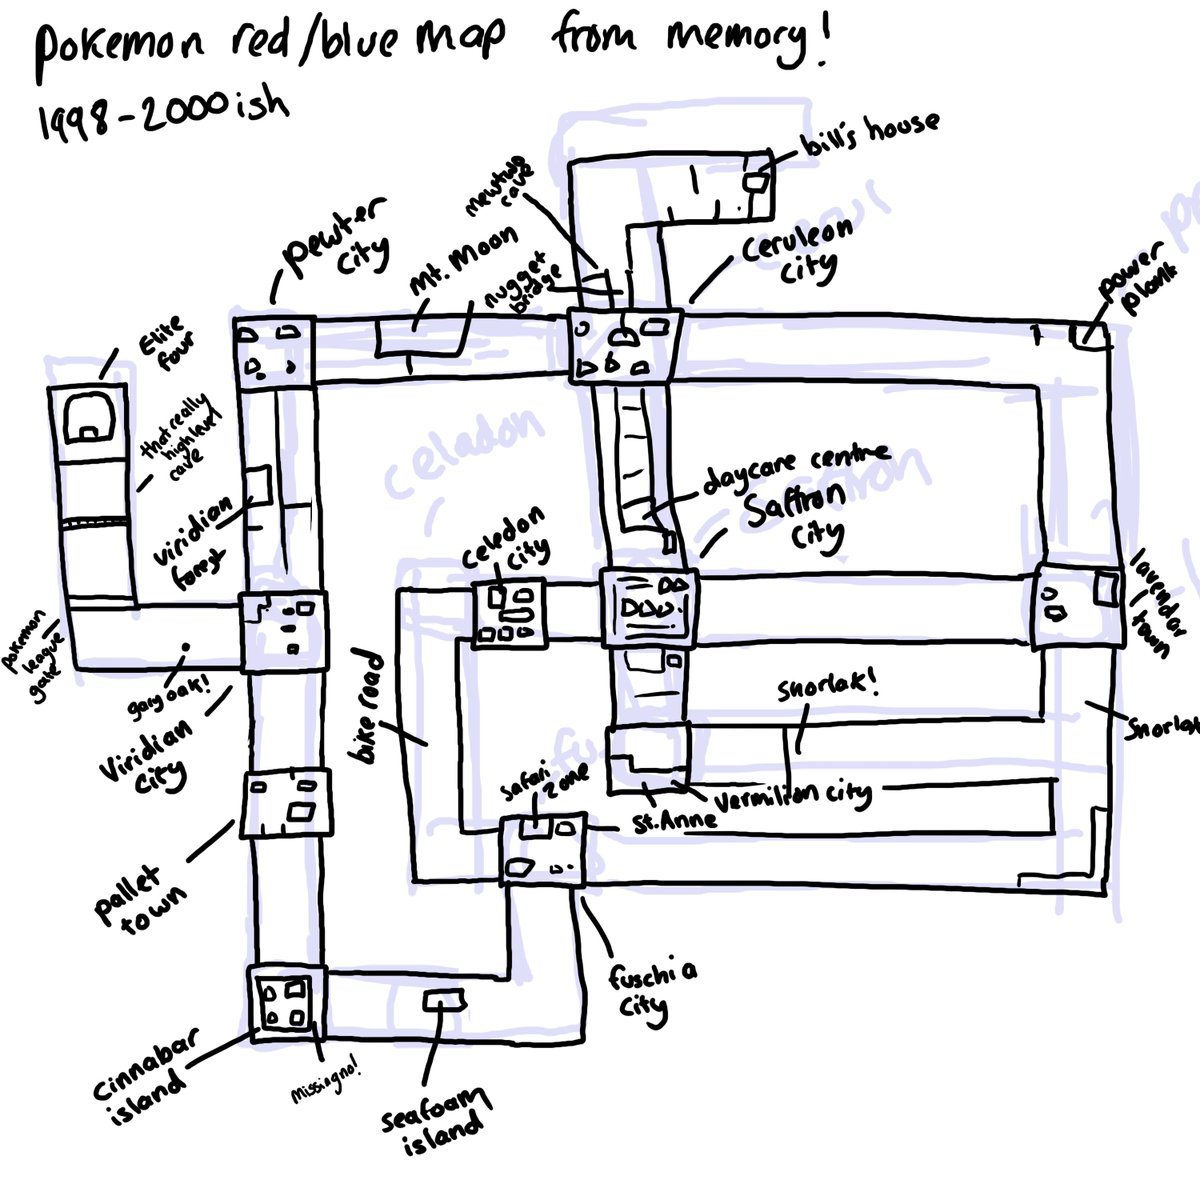 pokemon red/blue map from memory!
1998-2000ish
bill's house
mewtwo
cave
pewter
city
Mt. Moon
nugget
bridge
ceruleon
city
power
plant
Elite
four
that really
high level
cave
celadon
daycare centre
Saffron
city
viridian
forest
celedon
city
lavendar
town
pokemon
league
gate
gary oak!
Viridian
city
bike road
snorlak!
Snorlak
safari
zone
Vermilion city
St. Anne
pallet
town
fuschia
city
cinnabar
island
missingno!
seafoam
island